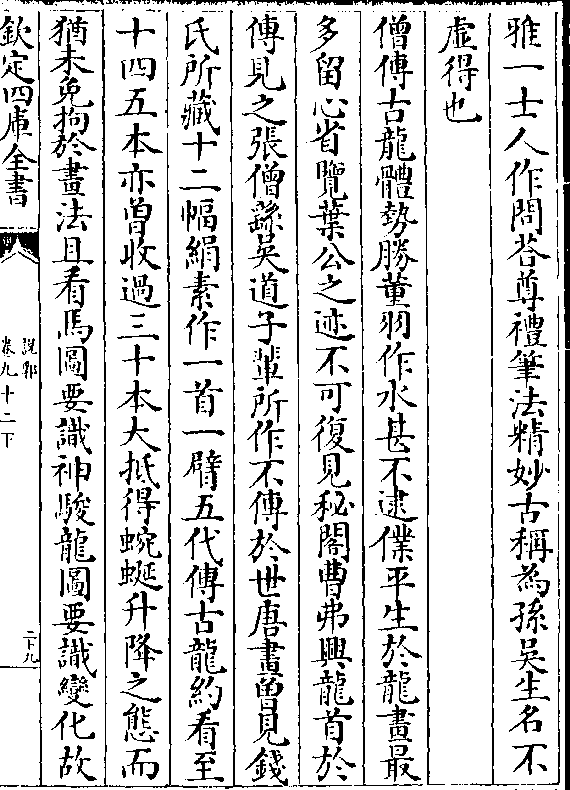 雅一士人作問荅尊禮筆法精妙古稱為孫吳生名不
虛得也
僧傳古龍體勢勝董羽作水甚不逮僕平生於龍畫最
多留心省覽葉公之迹不可復見秘閣曹弗興龍首於
傳見之張僧繇吳道子輩所作不傳於世唐畫曽見錢
氏所藏十二幅絹素作一首一臂五代傳古龍約看至
十四五本亦曽收過三十本大抵得蜿蜒升降之態而
猶未免拘於畫法且看馬圖要識神駿龍圖要識變化故
欽定四庫全書
說郛
卷九十二下